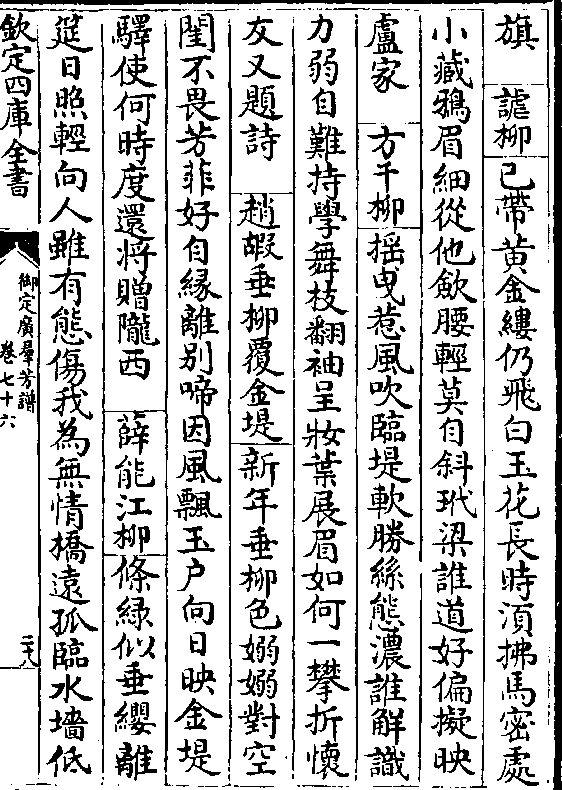 旗　謔柳已帶黃金縷仍飛白玉花長時須拂馬密處
小藏鴉眉細從他斂腰輕莫自斜玳梁誰道好偏擬映
盧家　方干柳揺曵惹風吹臨堤軟勝絲態濃誰解識
力弱自難持學舞枝翻袖呈妝葉展眉如何一攀折懷
友又題詩　趙嘏垂柳覆金堤新年垂柳色嫋嫋對空
閨不畏芳菲好自縁離別啼因風飄玉户向日映金堤
驛使何時度還將贈隴西　薛能江柳條緑似垂纓離
筵日照輕向人雖有態傷我為無情橋遠孤臨水墻低
欽定四庫全書
御定廣羣芳譜
卷七十六
二八